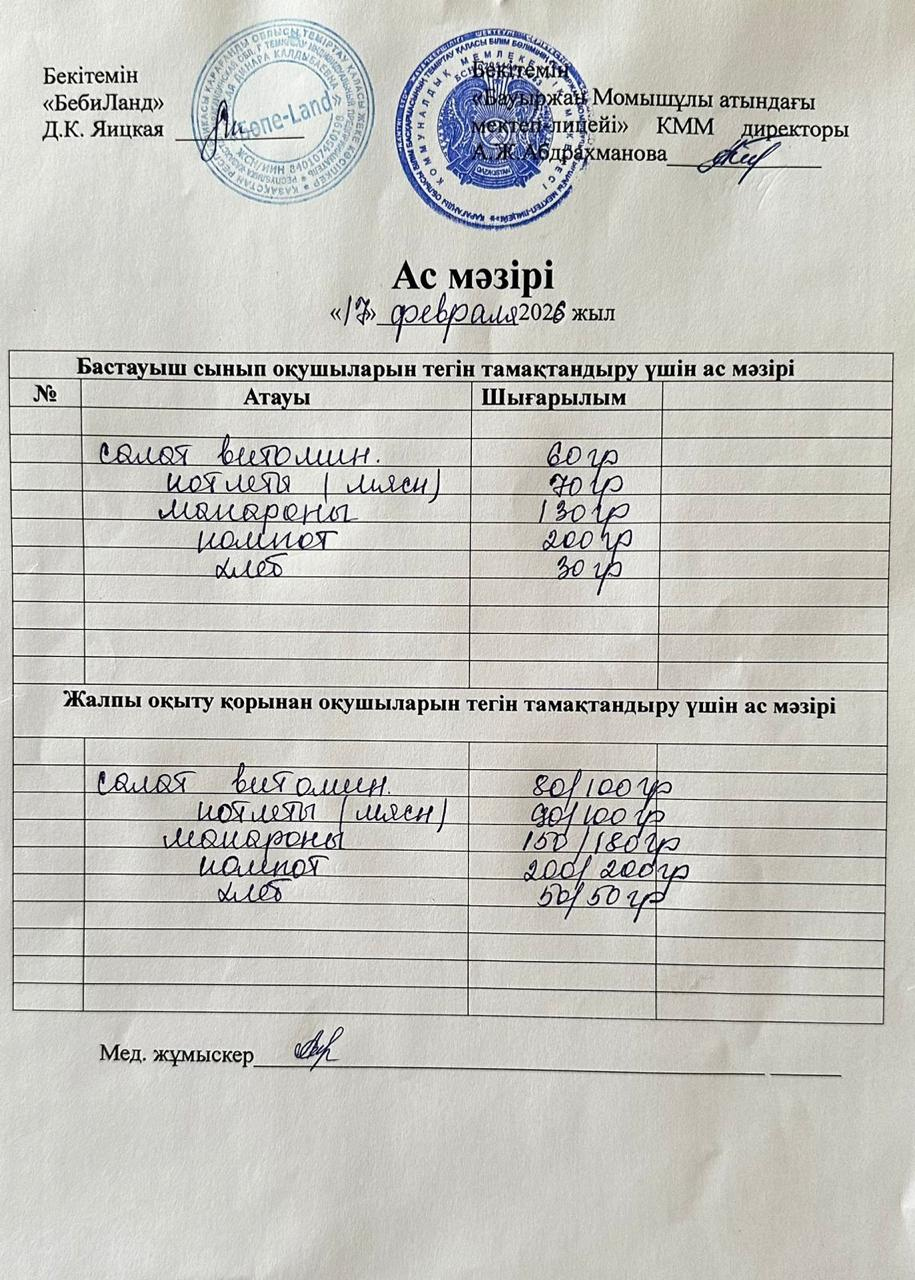 Бекітемін
«БебиЛанд»
Д.К. Яицкая
Бекітемін
«Бауыржан Момышұлы атындағы
мектеп-лицейі» КММ директоры
А.Ж.Абдрахманова
Ас мәзірі
«17» февраля 2026 жыл
Бастауыш сынып оқушыларын тегін тамақтандыру үшін ас мәзірі
№ Атауы Шығарылым
салат витамин. 60 гр
котлеты (мясн) 70 гр
макароны 130 гр
компот 200 гр
хлеб 30 гр
Жалпы оқыту қорынан оқушыларын тегін тамақтандыру үшін ас мәзірі
салат витамин. 80/100 гр
котлеты (мясн) 90/100 гр
макароны 150/180 гр
компот 200/200 гр
хлеб 50/50 гр
Мед. жұмыскер